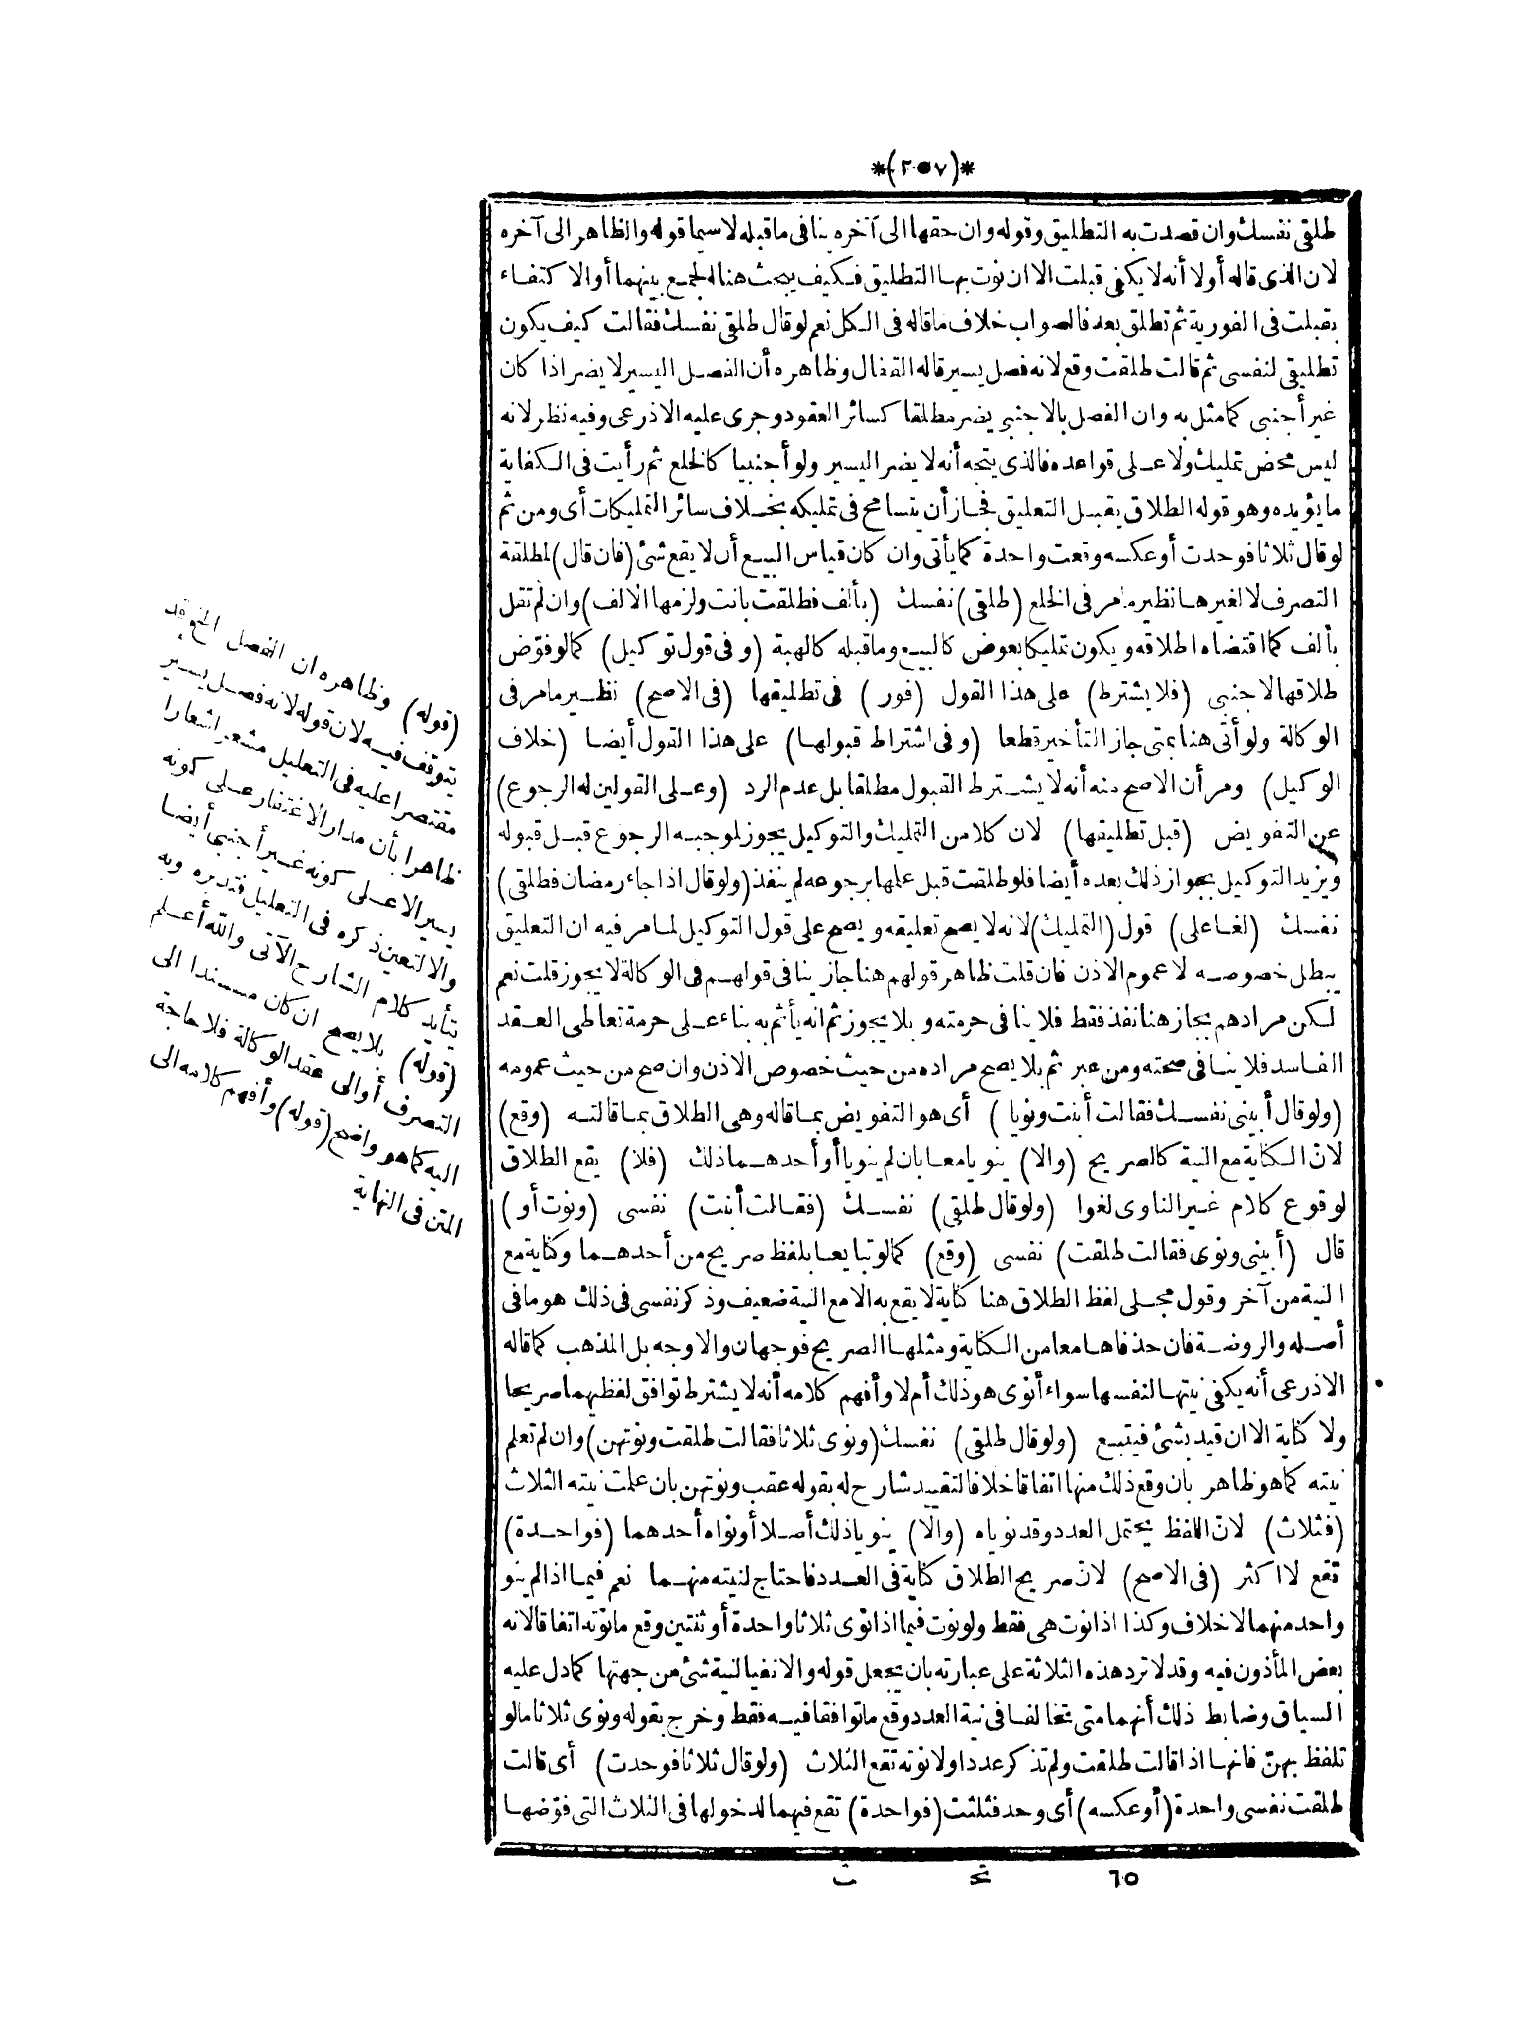 *(٢٥٧)*
طلقى نفسك وان قصدت به التطليق وقوله وان حقها الى آخره ينافى ما قبله لاسيما قوله والظاهر الى آخره
لان الذى قاله أولا أنه لا يكفى قبلت الا ان نوت بها التطليق فكيف يبحث هنا الجمع بينهما أو الاكتفاء
بقبلت فى الفورية ثم تطلق بعد فالصواب خلاف ما قاله فى الكل نعم لو قال طلقى نفسك فقالت كيف يكون
تطليقى لنفسى ثم قالت طلقت وقع لانه فصل يسير قاله القفال وظاهره أن الفصل اليسير لا يضر اذا كان
غير أجنبى كما مثل به وان الفصل بالاجنبى يضر مطلقا كسائر العقود وجرى عليه الاذرعى وفيه نظر لانه
ليس محض تمليك ولا على قواعده فالذى يتجه أنه لا يضر اليسير ولو أجنبيا كالخلع ثم رأيت فى الكفاية
ما يؤيده وهو قوله الطلاق يقبل التعليق فجاز أن يتسامح فى تمليكه بخلاف سائر التمليكات أى ومن ثم
لو قال ثلاثا فوحدت أو عكسه وقعت واحدة كما يأتى وان كان قياس البيع أن لا يقع شئ (فان قال) لمطلقة
التصرف لا لغيرها نظير ما مر فى الخلع (طلقى) نفسك (بألف فطلقت بانت ولزمها الالف) وان لم تقل
بألف كما اقتضاه اطلاقه ويكون تمليكا بعوض كالبيع وما قبله كالهبة (وفى قول توكيل) كما لو فوّض
طلاقها لاجنبى (فلا يشترط) على هذا القول (فور) فى تطليقها (فى الاصح) نظير ما مر فى
الوكالة ولو أتى هنا بمتى جاز التأخير قطعا (وفى اشتراط قبولها) على هذا القول أيضا (خلاف
الوكيل) ومر أن الاصح منه أنه لا يشترط القبول مطلقا بل عدم الرد (وعلى القولين له الرجوع)
عن التفويض (قبل تطليقها) لان كلا من التمليك والتوكيل يجوز لموجبه الرجوع قبل قبوله
ويزيد التوكيل بجواز ذلك بعده أيضا فلو طلقت قبل علمها برجوعه لم ينفذ (ولو قال اذا جاء رمضان فطلقى)
نفسك (لغا على) قول (التمليك) لانه لا يصح تعليقه ويصح على قول التوكيل لما مر فيه ان التعليق
يبطل خصوصه لا عموم الاذن فان قلت ظاهر قولهم هنا جاز ينافى قولهم فى الوكالة لا يجوز قلت نعم
لكن مرادهم بجاز هنا نفذ فقط فلا ينافى حرمته وبلا يجوز ثم انه يأثم به بناء على حرمة تعاطى العقد
الفاسد فلا ينافى صحته ومن عبر ثم بلا يصح مراده من حيث خصوص الاذن وان صح من حيث عمومه
(ولو قال أبينى نفسك فقالت أبنت ونويا) أى هو التفويض بما قاله وهى الطلاق بما قالته (وقع)
لان الكناية مع النية كالصريح (والا) ينويا معا بان لم ينويا أو أحدهما ذلك (فلا) يقع الطلاق
لوقوع كلام غير الناوى لغوا (ولو قال طلقى) نفسك (فقالت أبنت) نفسى (ونوت أو)
قال (أبينى ونوى فقالت طلقت) نفسى (وقع) كما لو تبايعا بلفظ صريح من أحدهما وكناية مع
النية من آخر وقول مجلى لفظ الطلاق هنا كناية لا يقع به الا مع النية ضعيف وذكر نفسى فى ذلك هو ما فى
أصله والروضة فان حذفاها معا من الكناية ومثلها الصريح فوجهان والاوجه بل المذهب كما قاله
الاذرعى أنه يكفى نيتها لنفسها سواء أنوى هو ذلك أم لا وأفهم كلامه أنه لا يشترط توافق لفظيهما صريحا
ولا كناية الا ان قيد بشئ فيتبع (ولو قال طلقى) نفسك (ونوى ثلاثا فقالت طلقت ونوتهن) وان لم تعلم
نيته كما هو ظاهر بان وقع ذلك منها اتفاقا خلافا لتقييد شارح له بقوله عقب ونوتهن بان علمت نيته الثلاث
(فثلاث) لان اللفظ يحتمل العدد وقد نوياه (والا) ينويا ذلك أصلا أو نواه أحدهما (فواحدة)
تقع لا اكثر (فى الاصح) لان صريح الطلاق كناية فى العدد فاحتاج لنيته منهما نعم فيما اذا لم ينو
واحد منهما لا خلاف وكذا اذا نوت هى فقط ولو نوت فيما اذا نوى ثلاثا واحدة أو ثنتين وقع ما نوته اتفاقا لانه
بعض المأذون فيه وقد لا ترد هذه الثلاثة على عبارته بان يجعل قوله والا نفيا لنية شئ من جهتها كما دل عليه
السياق وضابط ذلك أنهما متى تخالفا فى نية العدد وقع ما توافقا فيه فقط وخرج بقوله ونوى ثلاثا ما لو
تلفظ بهن فانها اذا قالت طلقت ولم تذكر عددا ولا نوته تقع الثلاث (ولو قال ثلاثا فوحدت) أى قالت
طلقت نفسى واحدة (أو عكسه) أى وحد فثلثت (فواحدة) تقع فيهما لدخولها فى الثلاث التى فوّضها
٦٥
(قوله) وظاهره ان الفصل الخ قد
يتوقف فيه لان قوله لانه فصل يسير
مقتصرا عليه فى التعليل مشعر اشعارا
ظاهرا بأن مدار الاغتفار على كونه
يسيرا لا على كونه غير أجنبى أيضا
والا لتعين ذكره فى التعليل فتدبره وبه
يتأيد كلام الشارح الآتى والله أعلم
(قوله) بلا يصح ان كان مسندا الى
التصرف أو الى عقد الوكالة فلا حاجة
اليه كما هو واضح (قوله) وأفهم كلامه الى
المتن فى النهاية